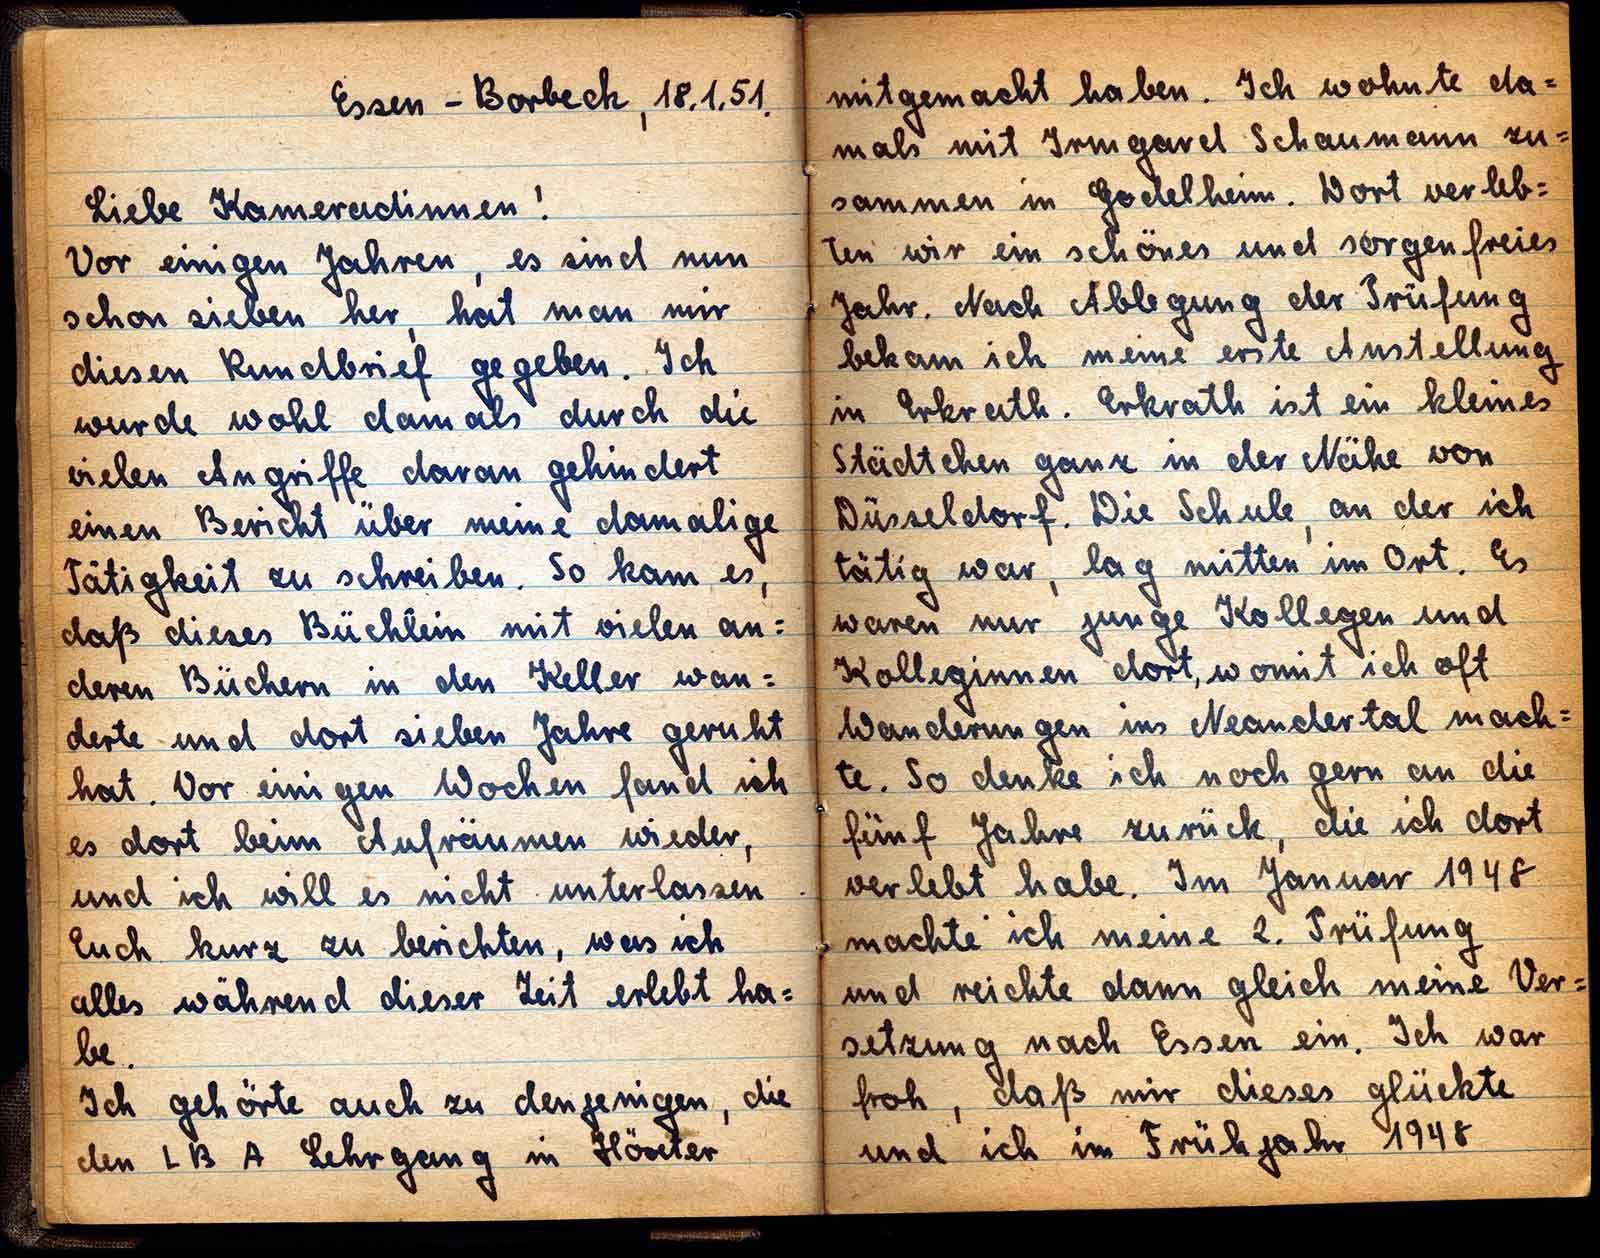 Essen - Borbeck, 18.1.51.
Liebe Kameradinnen!
Vor einigen Jahren, es sind nun
schon sieben her, hat man mir
diesen Rundbrief gegeben. Ich
wurde wohl damals durch die
vielen Angriffe daran gehindert
einen Bericht über meine damalige
Tätigkeit zu schreiben. So kam es,
daß dieses Büchlein mit vielen an=
deren Büchern in den Keller wan=
derte und dort sieben Jahre geruht
hat. Vor einigen Wochen fand ich
es dort beim Aufräumen wieder,
und ich will es nicht unterlassen
Euch kurz zu berichten, was ich
alles während dieser Zeit erlebt ha=
be.
Ich gehörte auch zu denjenigen, die
den L B A Lehrgang in Höxter
mitgemacht haben. Ich wohnte da=
mals mit Irmgard Schaumann zu=
sammen in Godelheim. Dort verleb=
ten wir ein schönes und sorgenfreies
Jahr. Nach Ablegung der Prüfung
bekam ich meine erste Anstellung
in Erkrath. Erkrath ist ein kleines
Städtchen ganz in der Nähe von
Düsseldorf. Die Schule, an der ich
tätig war, lag mitten im Ort. Es
waren nur junge Kollegen und
Kolleginnen dort, womit ich oft
Wanderungen ins Neandertal mach=
te. So denke ich noch gern an die
fünf Jahre zurück, die ich dort
verlebt habe. Im Januar 1948
machte ich meine 2. Prüfung
und reichte dann gleich meine Ver=
setzung nach Essen ein. Ich war
froh, daß mir dieses glückte
und ich im Frühjahr 1948